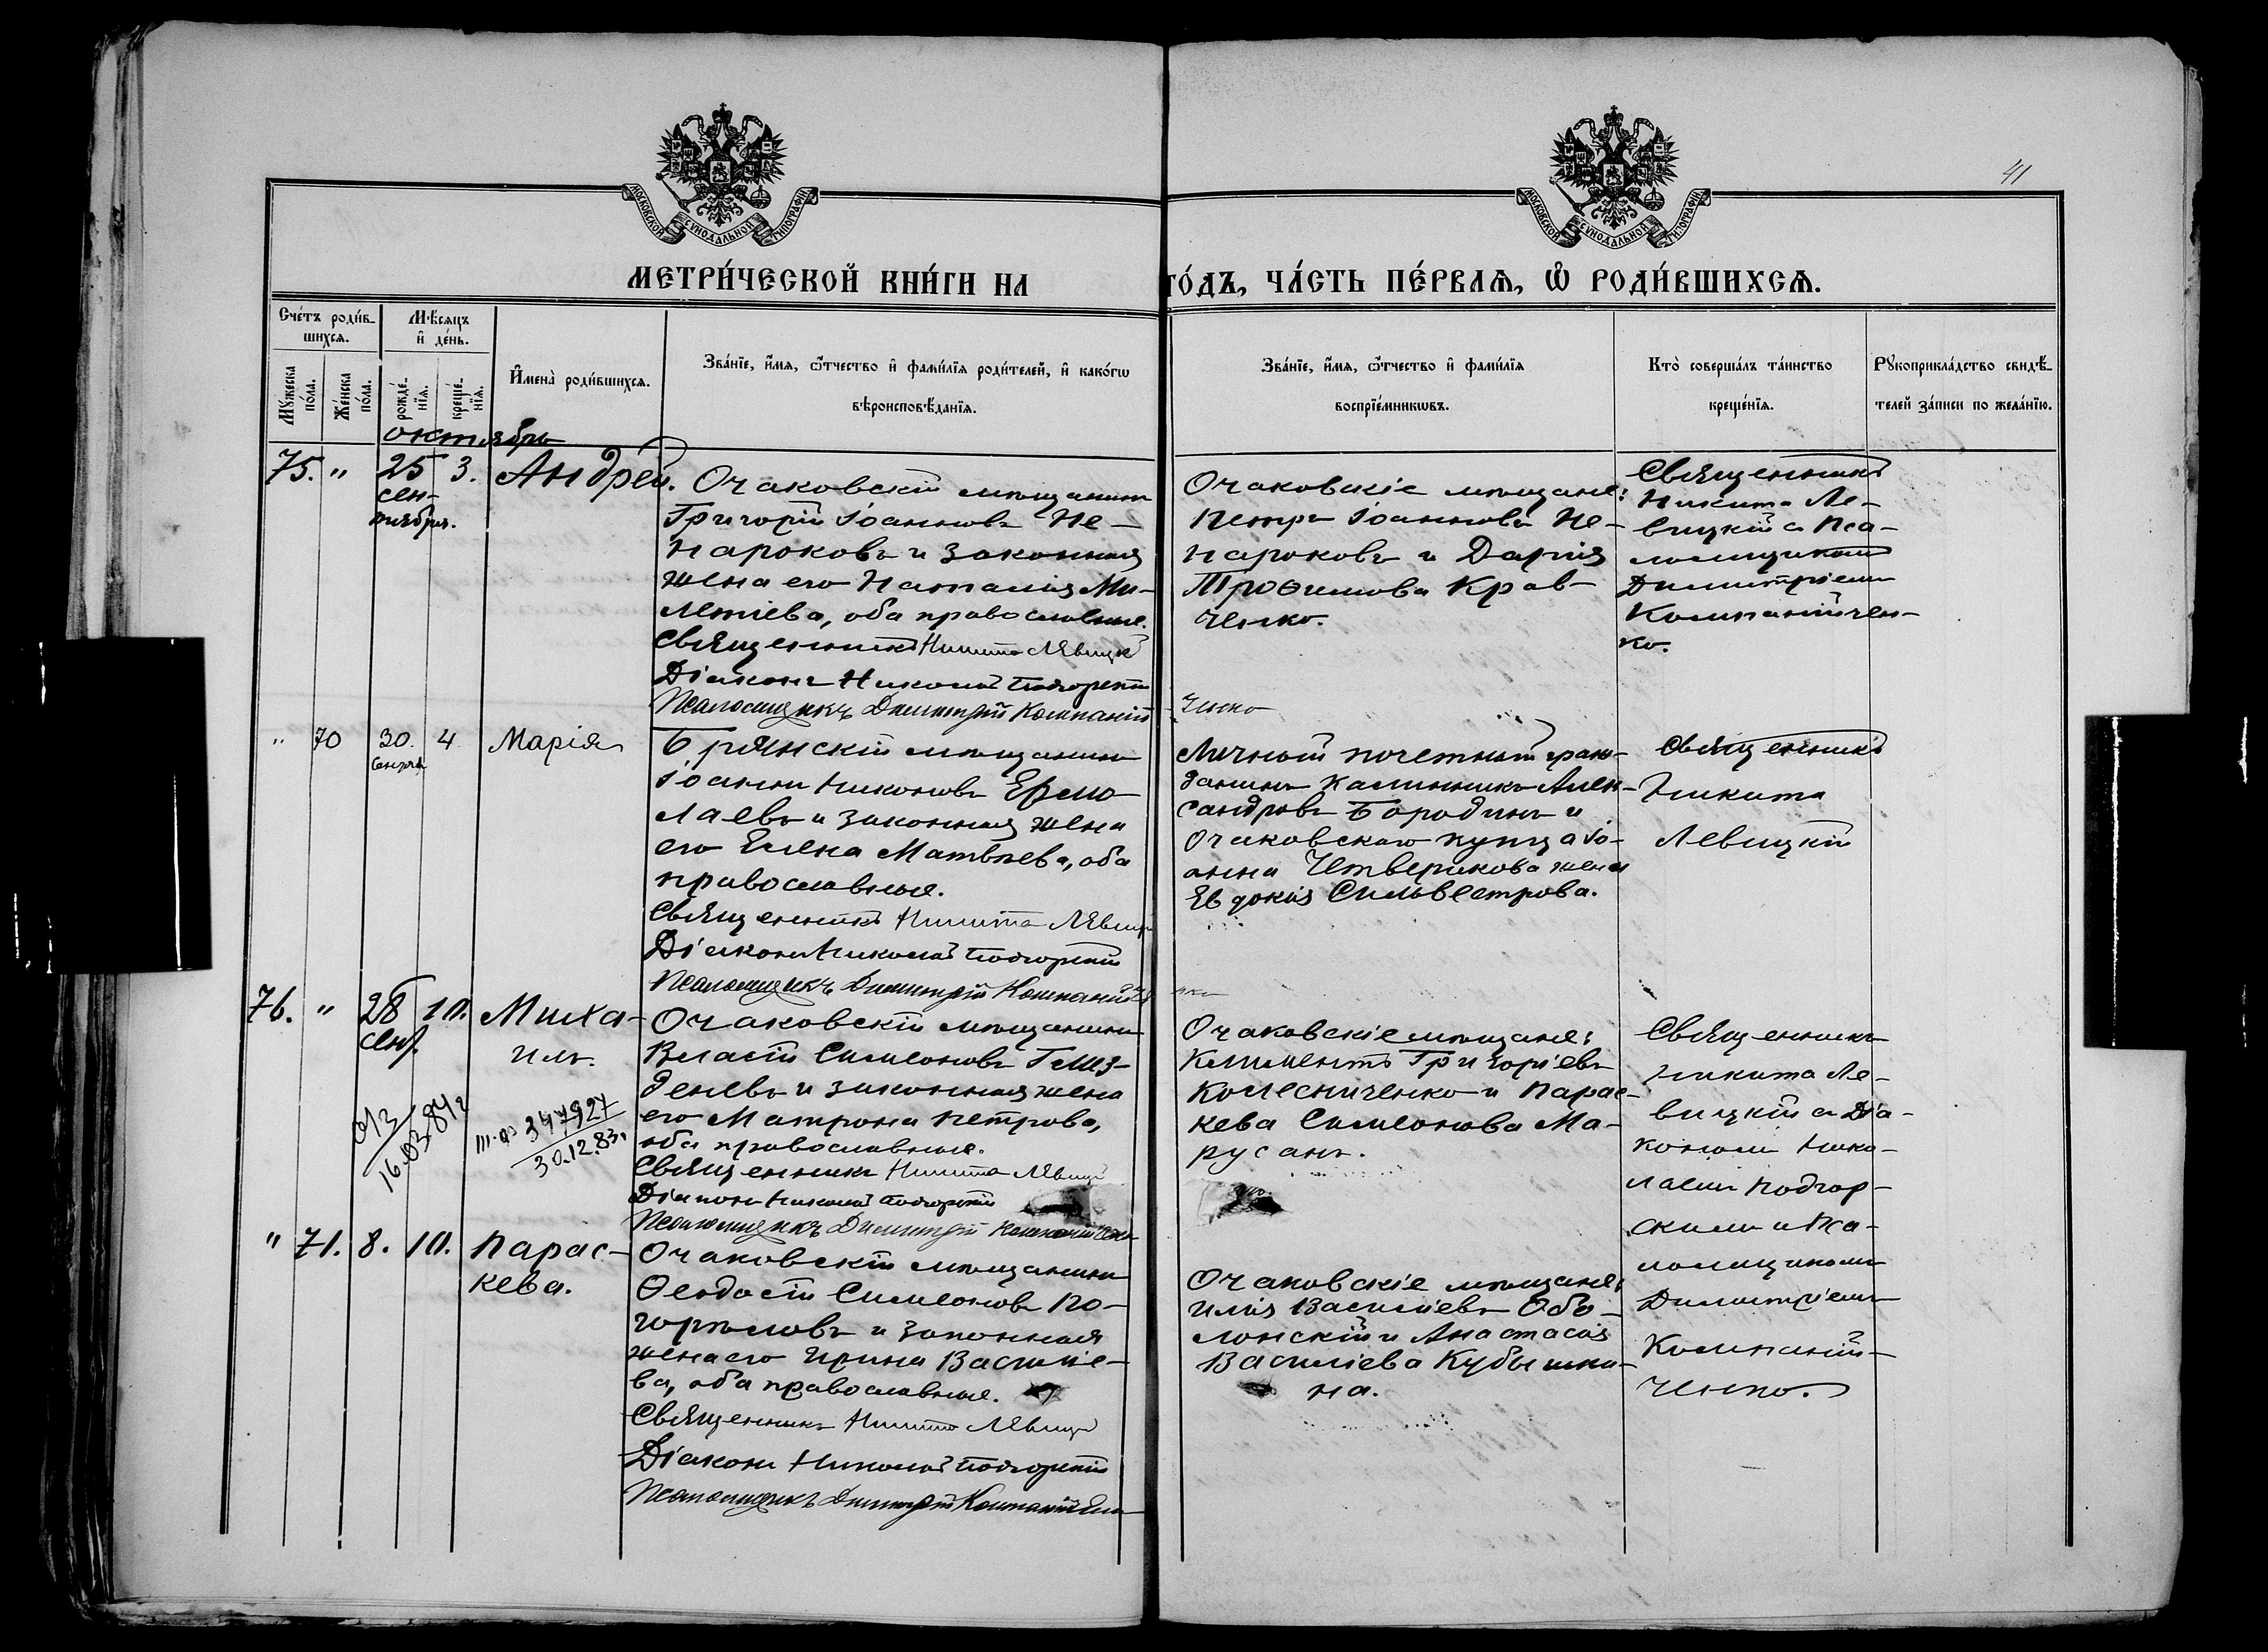 41
МОСКОВСКОЙ СѴНОДАЛЬНОЙ ТИПОГРАФІИ
МОСКОВСКОЙ СѴНОДАЛЬНОЙ ТИПОГРАФІИ
МЕТРИ́ЧЕСКОЙ КНИ́ГИ НА
ГО́ДЪ, ЧА́СТЬ ПЕ́РВАѦ, Ѽ РОДИ́ВШИХСѦ.
Сче́тъ роди́в-
шихсѧ.
Мѣ́сѧцъ
и҆ де́нь.
Мꙋ́жеска
по́ла.
Же́нска
по́ла.
рожде́-
нїѧ.
креще́-
нїѧ.
И҆мена̀ роди́вшихсѧ.
Зва́нїе, и҆́мѧ, ѻ҆́тчество и҆ фами́лїѧ роди́телей, и҆ како́гѡ
вѣроисповѣ́данїѧ.
Зва́нїе, и҆́мѧ, ѻ҆́тчество и҆ фами́лїѧ
воспрїе́мникѡвъ.
Кто̀ соверша́лъ та́инство
креще́нїѧ.
Рꙋкоприкла́дство свидѣ́-
телей за́писи по жела́нїю.
октябрь
75. " 25 3. Андрей.
сен-
тября.
Очаковскій мѣщанинъ
Григорій Іоанновъ Не-
нароковъ и законная
жена его Наталія Ми-
летіева, оба православные.
Священникъ Никита Левицкій
Діаконъ Николай Подгорскій
Псаломщикъ Димитрій Компаній-
ченко
Очаковскіе мѣщане:
Петръ Іоанновъ Не-
нароковъ и Дарія
Троѳимова Крав-
ченко.
Священникъ
Никита Ле-
вицкій съ Пса-
ломщикомъ
Димитріемъ
Компанійчен-
ко.
" 70 30. 4 Марія
Сентяб.
Брянскій мѣщанинъ
Іоаннъ Никоновъ Ермо-
лаевъ и законная жена
его Елена Матвѣева, оба
православные.
Священникъ Никита Левицкій
Діаконъ Николай Подгорскій
Псаломщикъ Димитрій Компанійче
нко
Личный почетный граж-
данинъ Калинникъ Алек-
сандровъ Бородинъ и
Очаковскаго купца Іо-
анна Четверикова жена
Евдокія Сильвестрова.
Священникъ
Никита
Левицкій
76. " 28 10. Миха-
сен. илъ.
Очаковскій мѣщанинъ
Власій Симеоновъ Гмыз-
деневъ и законная жена
его Матрона Петрова,
оба православные.
Священникъ Никита Левицкій
Діаконъ Николай Подгорскій
Псаломщикъ Димитрій Компанійченко
16.03.84г
347927
30.12.83г
Очаковскіе мѣщане:
Климентъ Григоріевъ
Колесниченко и Парас-
кева Симеонова Ма-
русанъ.
Священникъ
Никита Ле-
вицкій съ Діа-
кономъ Нико-
лаемъ Подгор-
скимъ и Пса-
ломщикомъ
Димитріемъ
Компаній-
ченко.
" 71. 8. 10. Парас-
кева.
Очаковскій мѣщанинъ
Ѳеодосій Симеоновъ По-
горѣловъ и законная
жена его Ирина Василіе-
ва, оба православные.
Священникъ Никита Левицкій
Діаконъ Николай Подгорскій
Псаломщикъ Димитрій Компанійченко
Очаковскіе мѣщане:
Илія Василіевъ Обо-
лонскій и Анастасія
Василіева Кубышки-
на.